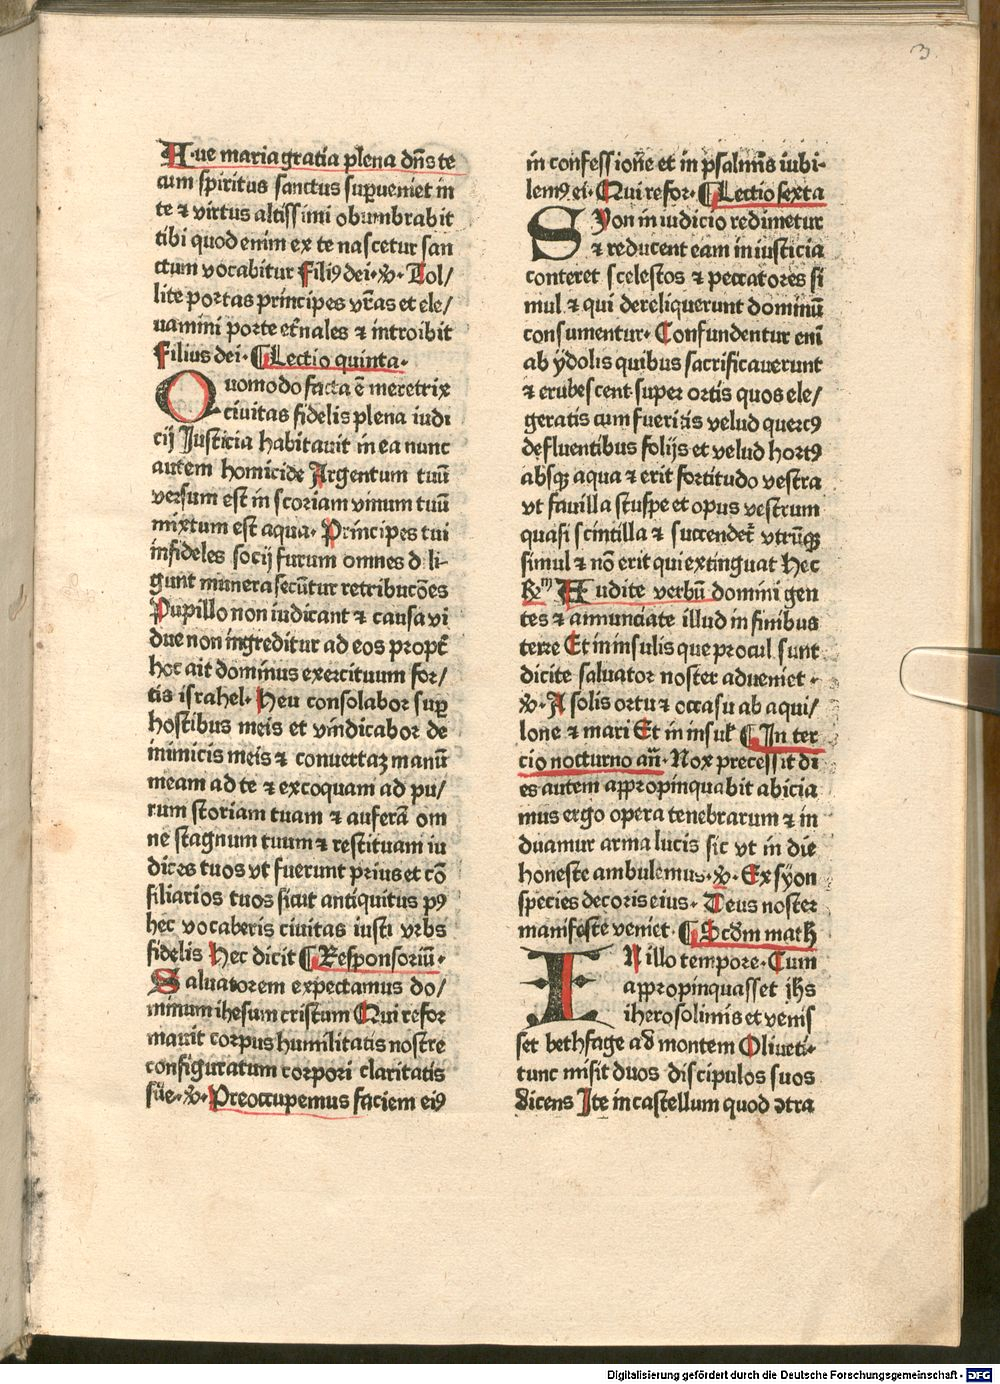 3
Aue maria gratia plena dn̄s te
cum spiritus sanctus suꝑueniet in
te ⁊ virtus altissimi obumbrabit
tibi quod enim ex te nascetur san
ctum vocabitur Filiꝰ dei· ℣· Tol/
lite portas principes vr̄as et ele/
uamini porte et̄nales ⁊ introibit
Filius dei· ¶ Lectio quinta·
Quomodo facta ē meretrix
ciuitas fidelis plena iudi
cij Justicia habitauit in ea nunc
autem homicide Argentum tuū
versum est in scoriam vinum tuū
mixtum est aqua· Principes tui
infideles socij furum omnes d li-
gunt munera secūtur retribucōes
Pupillo non iudicant ⁊ causa vi
due non ingreditur ad eos propt̄
hoc ait dominus exercituum for/
tis israhel· Heu consolabor suꝑ
hostibus meis et vindicabor de
inimicis meis ⁊ conuertaꝫ manū
meam ad te ⁊ excoquam ad pu/
rum storiam tuam ⁊ auferā om
ne stagnum tuum ⁊ restituam iu
dices tuos vt fuerunt prius et cō
siliarios tuos sicut antiquitus pꝰ
hec vocaberis ciuitas iusti vrbs
fidelis Hec dicit ¶ Responsoriū·
Saluatorem expectamus do/
minum ihesum cristum Qui refor
mauit corpus humilitatis nostre
configuratum corpori claritatis
sūe· ℣· Preoccupemus faciem eiꝰ
in confessione et in psalmis iubi-
lemꝰ ei· Qui refor· ¶ Lectio sexta
Syon in iudicio redimetur
⁊ reducent eam in iusticia
conteret scelestos ⁊ peccatores si
mul ⁊ qui dereliquerunt dominū
consumentur· Confundentur enī
ab ydolis quibus sacrificauerunt
⁊ erubescent super ortis quos ele/
geratis cum fueritis velud quercꝰ
defluentibus folijs et velud hortꝰ
absqꝫ aqua ⁊ erit fortitudo vestra
vt fauilla stuspe et opus vestrum
quasi scintilla ⁊ succendet̄ vtrūqꝫ
simul ⁊ nō erit qui extinguat Hec
℞m Audite verbū domini gen
tes ⁊ annunciate illud in finibus
terre Et in insulis que procul sunt
dicite saluator noster adueniet·
℣· A solis ortu ⁊ occasu ab aqui/
lone ⁊ mari Et in insul̄ ¶ In ter
cio nocturno an̄· Nox precessit di
es autem appropinquabit abicia
mus ergo opera tenebrarum ⁊ in
duamur arma lucis sic vt in die
honeste ambulemus· ℣· Ex syon
species decoris eius· Deus noster
manifeste veniet· ¶ Scdm math
IN illo tempore· Cum
appropinquasset jhs
iherosolimis et venis
set bethfage ad montem Oliueti·
tunc misit duos discipulos suos
dicens Ite in castellum quod ↄtra
Digitalisierung gefördert durch die Deutsche Forschungsgemeinschaft - DFG